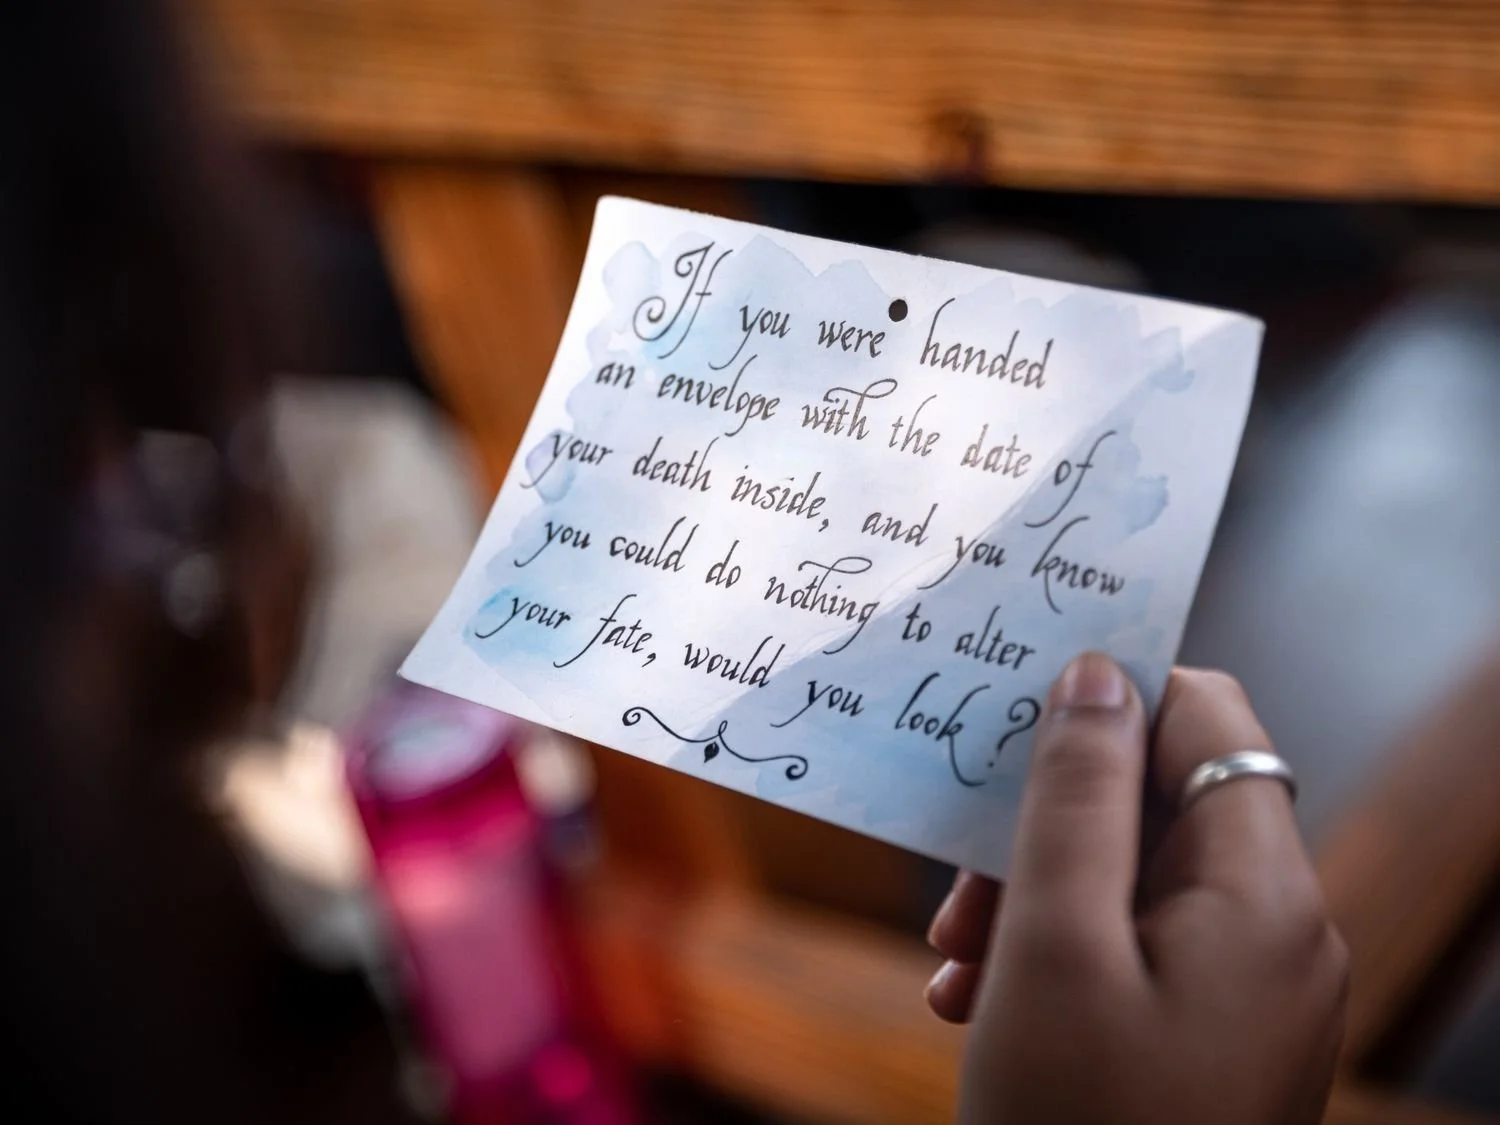 If you were handed
an envelope with the date of
your death inside, and you know
you could do nothing to alter
your fate, would you look?